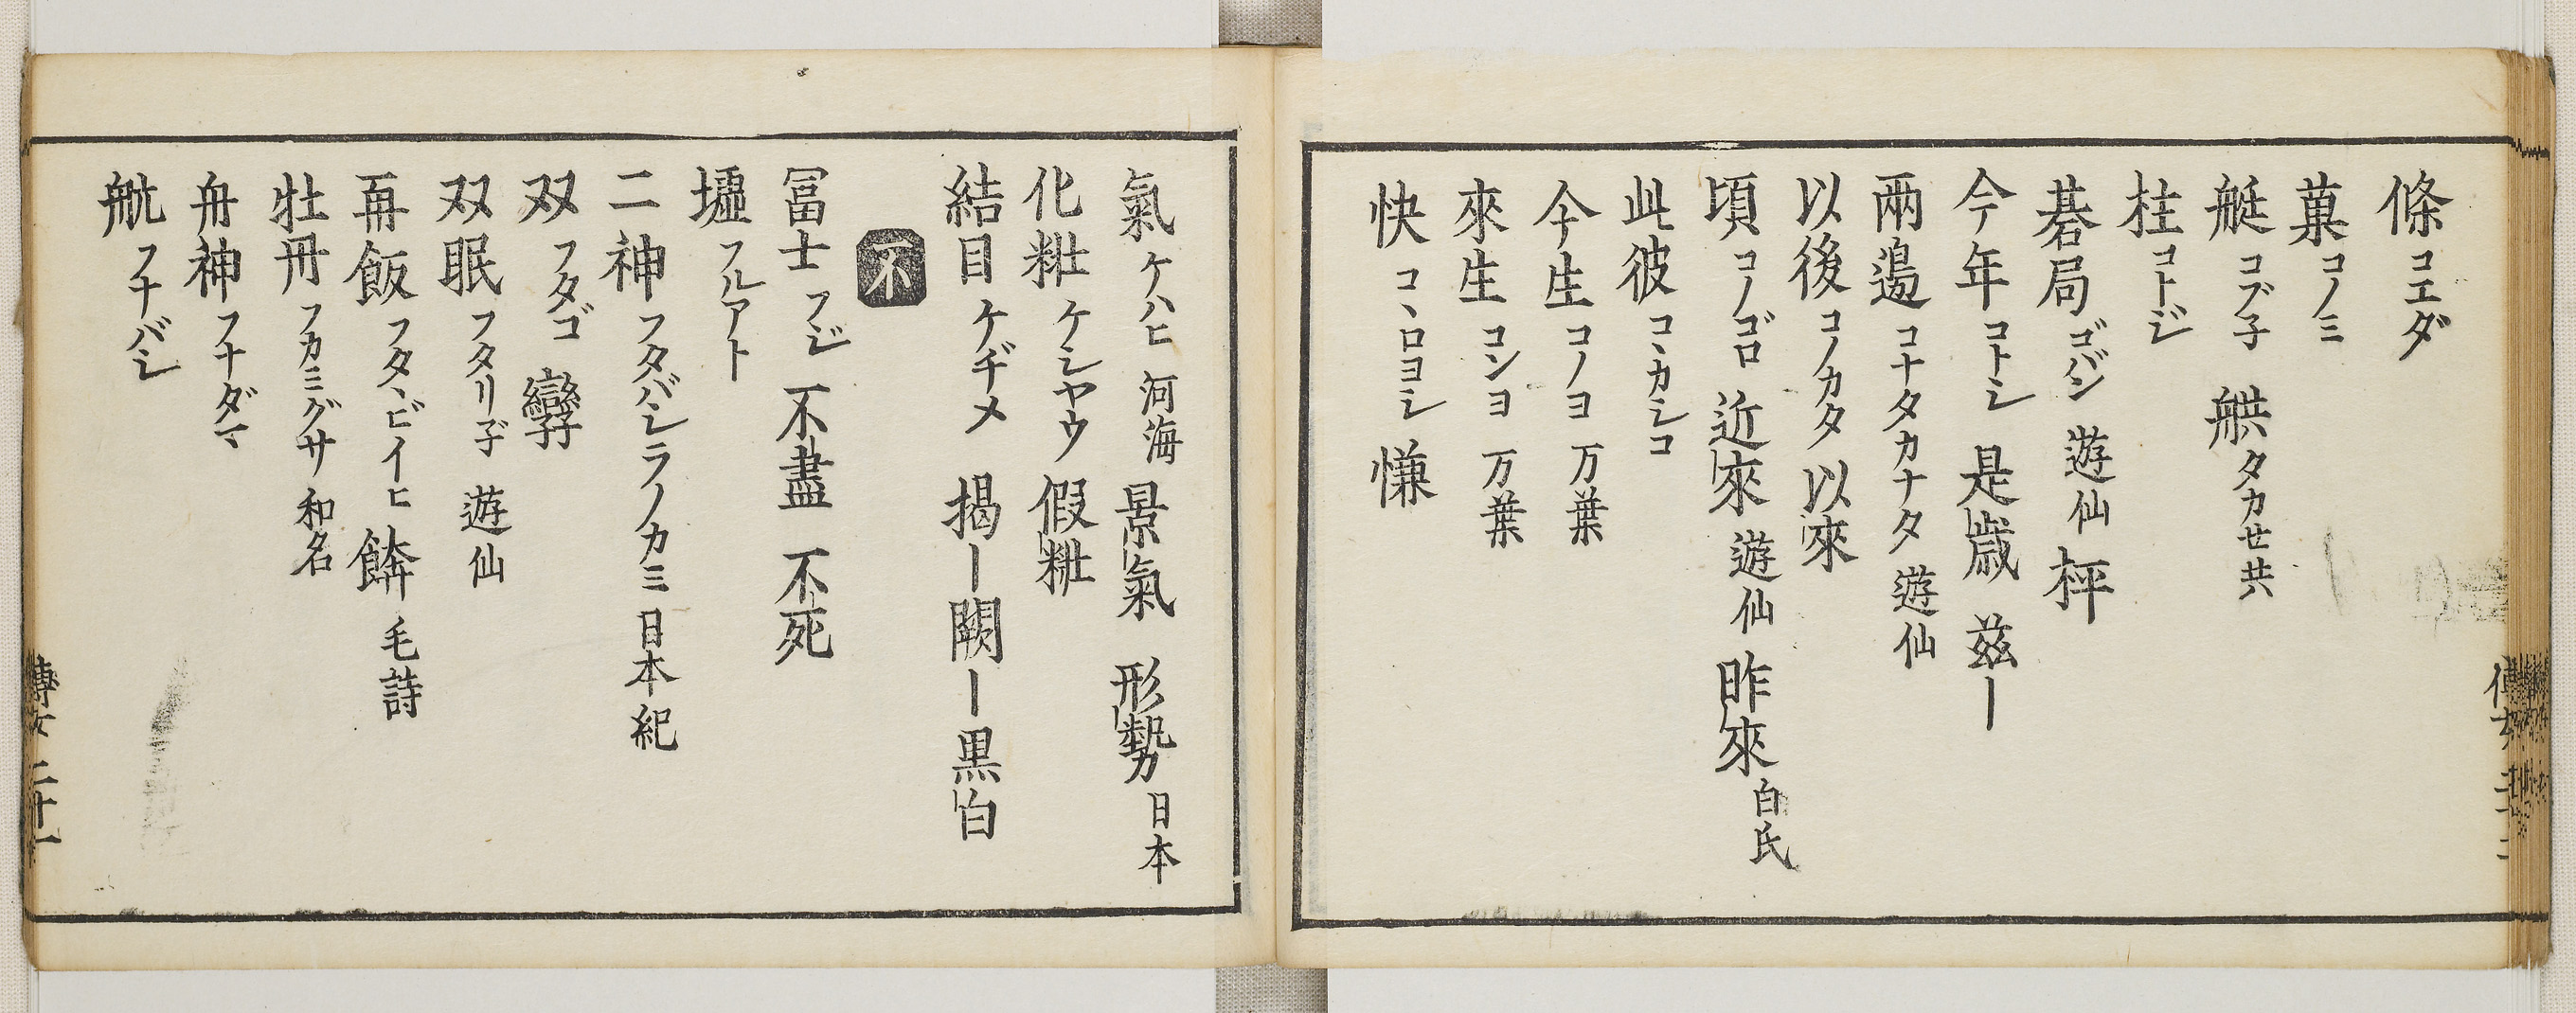 條 コエダ
菓 コノミ
艇 コブ子 舼 タカセ共
柱 コトジ
碁局 ゴバン 遊仙 枰
今年 コトシ 是歳 茲ー
兩邉 コナタカナタ 遊仙
以後 コノカタ 以來
頃 コノゴロ 近來 遊仙 昨來 白氏
此彼 コヽカシコ
今生 コノヨ 万葉
來生 コンヨ 万葉
快 コヽロヨシ 慊
氣 ケハヒ 河海 景氣 形勢 日本
化粧 ケシヤウ 假粧
結目 ケヂメ 掲ー 闕ー 黒白
不
冨士 フジ 不盡 不死
墟 フルアト
二神 フタバシラノカミ 日本紀
双 フタゴ 孿
双眠 フタリ子 遊仙
再飯 フタヽビイヒ 餴 毛詩
牡丹 フカミグサ 和名
舟神 フナダマ
航 フナバシ
二十一